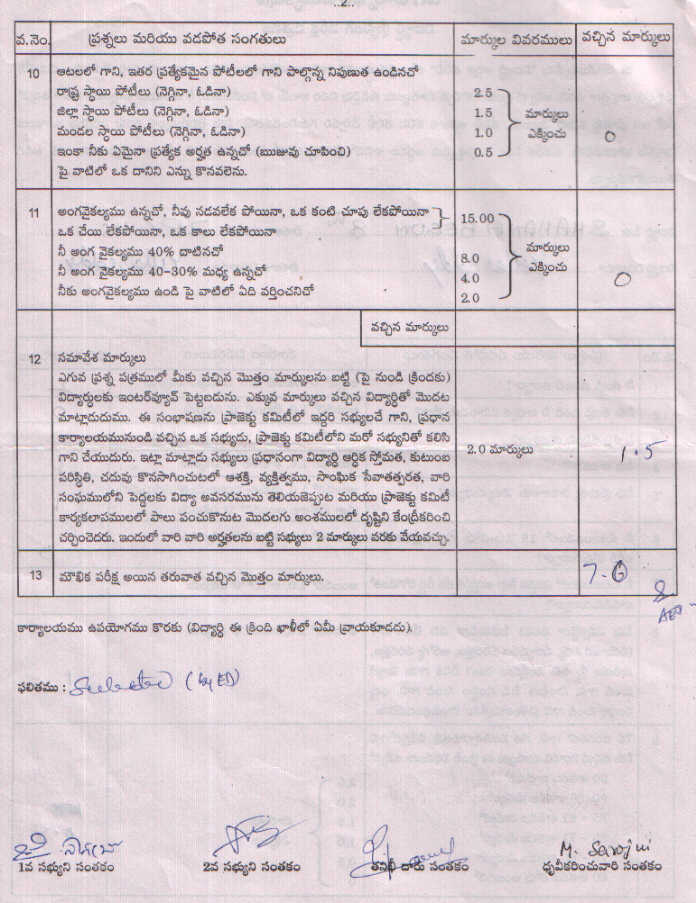 ..2..
వ.నెం. ప్రశ్నలు మరియు వడపోత సంగతులు మార్కుల వివరములు వచ్చిన మార్కులు
10 ఆటలలో గాని, ఇతర ప్రత్యేకమైన పోటీలలో గాని పాల్గొన్న నిపుణుత ఉండినచో
రాష్ట్ర స్థాయి పోటీలు (నెగ్గినా, ఓడినా) 2.5
జిల్లా స్థాయి పోటీలు (నెగ్గినా, ఓడినా) 1.5 మార్కులు
మండల స్థాయి పోటీలు (నెగ్గినా, ఓడినా) 1.0 ఎక్కించు 0
ఇంకా నీకు ఏమైనా ప్రత్యేక అర్హత ఉన్నచో (ఋజువు చూపించి) 0.5
పై వాటిలో ఒక దానిని ఎన్ను కొనవలెను.
11 అంగవైకల్యము ఉన్నచో, నీవు నడవలేక పోయినా, ఒక కంటి చూపు లేకపోయినా 15.00
ఒక చేయి లేకపోయినా, ఒక కాలు లేకపోయినా
నీ అంగ వైకల్యము 40% దాటినచో 8.0 మార్కులు
నీ అంగ వైకల్యము 40-30% మధ్య ఉన్నచో 4.0 ఎక్కించు 0
నీకు అంగవైకల్యము ఉండి పై వాటిలో ఏది వర్తించనిచో 2.0
వచ్చిన మార్కులు
12 సమావేశ మార్కులు
ఎగువ ప్రశ్న పత్రములో మీకు వచ్చిన మొత్తం మార్కులను బట్టి (పై నుండి క్రిందకు)
విద్యార్థులకు ఇంటర్వ్యూవ్ పెట్టబడును. ఎక్కువ మార్కులు వచ్చిన విద్యార్థితో మొదట
మాట్లాడుదుము. ఈ సంభాషణను ప్రాజెక్టు కమిటీలో ఇద్దరి సభ్యులచే గాని, ప్రధాన
కార్యాలయమునుండి వచ్చిన ఒక సభ్యుడు, ప్రాజెక్టు కమిటీలోని మరో సభ్యునితో కలిసి
గాని చేయుదురు. ఇట్లా మాట్లాడు సభ్యులు ప్రధానంగా విద్యార్థి ఆర్థిక స్తోమత, కుటుంబ 2.0 మార్కులు 1.5
పరిస్థితి, చదువు కొనసాగించుటలో ఆశక్తి, వ్యక్తిత్వము, సాంఘిక సేవాతత్పరత, వారి
సంఘములోని పెద్దలకు విద్యా అవసరమును తెలియజెప్పుట మరియు ప్రాజెక్టు కమిటీ
కార్యకలాపములలో పాలు పంచుకొనుట మొదలగు అంశములలో దృష్టిని కేంద్రీకరించి
చర్చించెదరు. ఇందులో వారి వారి అర్హతలను బట్టి సభ్యులు 2 మార్కులు వరకు వేయవచ్చు.
13 మౌఖిక పరీక్ష అయిన తరువాత వచ్చిన మొత్తం మార్కులు. 7.0
కార్యాలయము ఉపయోగము కొరకు (విద్యార్థి ఈ క్రింది ఖాళీలో ఏమీ వ్రాయకూడదు).
ఫలితము : Selected (by ED)
M. Sarojni
1వ సభ్యుని సంతకం 2వ సభ్యుని సంతకం తనిఖీ దారు సంతకం ధృవీకరించువారి సంతకం